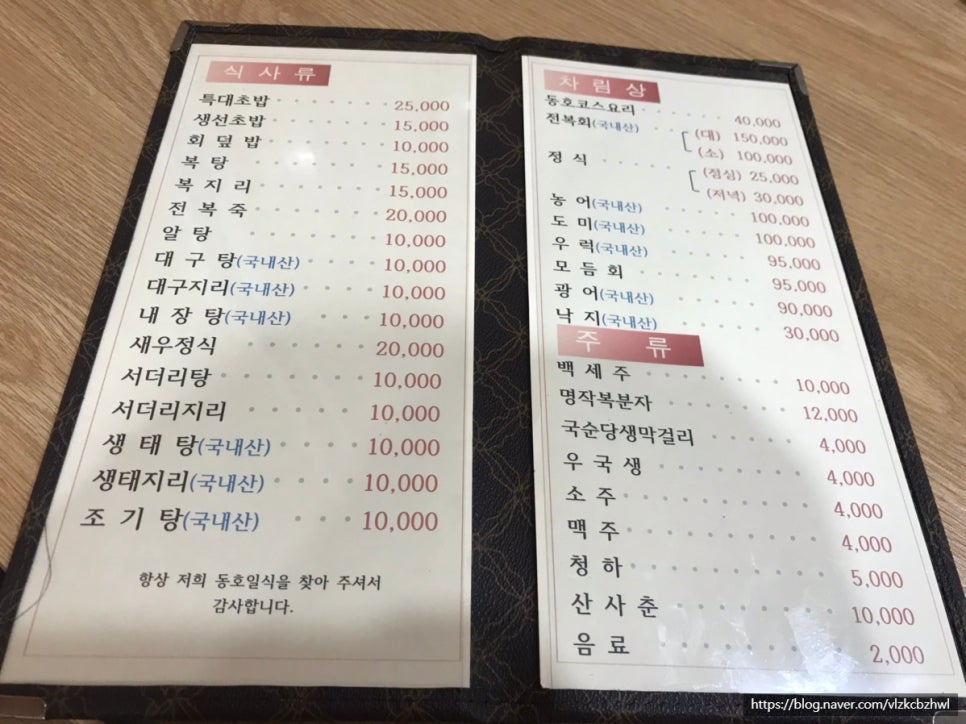 식사류
특대초밥 25,000
생선초밥 15,000
회덮밥 10,000
복탕 15,000
복지리 15,000
전복죽 20,000
알탕 10,000
대구탕(국내산) 10,000
대구지리(국내산) 10,000
내장탕(국내산) 10,000
새우정식 20,000
서더리탕 10,000
서더리지리 10,000
생태탕(국내산) 10,000
생태지리(국내산) 10,000
조기탕(국내산) 10,000
항상 저희 동호일식을 찾아 주셔서
감사합니다.
차림상
동호코스요리 40,000
전복회(국내산) (대) 150,000
(소) 100,000
정식 (점심) 25,000
(저녁) 30,000
농어(국내산) 100,000
도미(국내산) 100,000
우럭(국내산) 95,000
모듬회 95,000
광어(국내산) 90,000
낙지(국내산) 30,000
주류
백세주 10,000
명작복분자 12,000
국순당생막걸리 4,000
우국생 4,000
소주 4,000
맥주 4,000
청하 5,000
산사춘 10,000
음료 2,000
https://blog.naver.com/vlzkcbzhwl